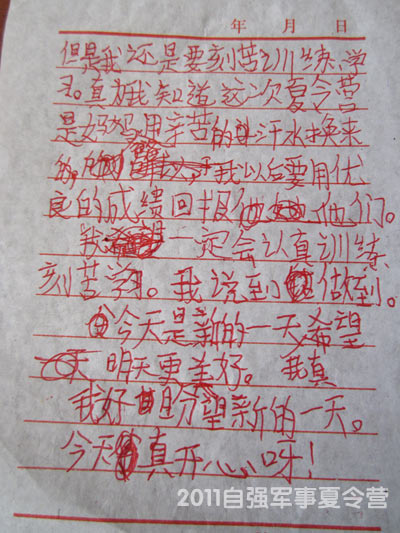 年 月 日
但是我还是要刻苦训练,学
习。真为我知道这次夏令营
是妈妈用辛苦的汗水换来
的。我以后要用优
良的成绩回报他们。
我一定会认真训练
刻苦学习。我说到做到。
今天是新的一天,希望
明天更美好。我真
我好盼望新的一天。
今天真开心呀!
2011自强军事夏令营